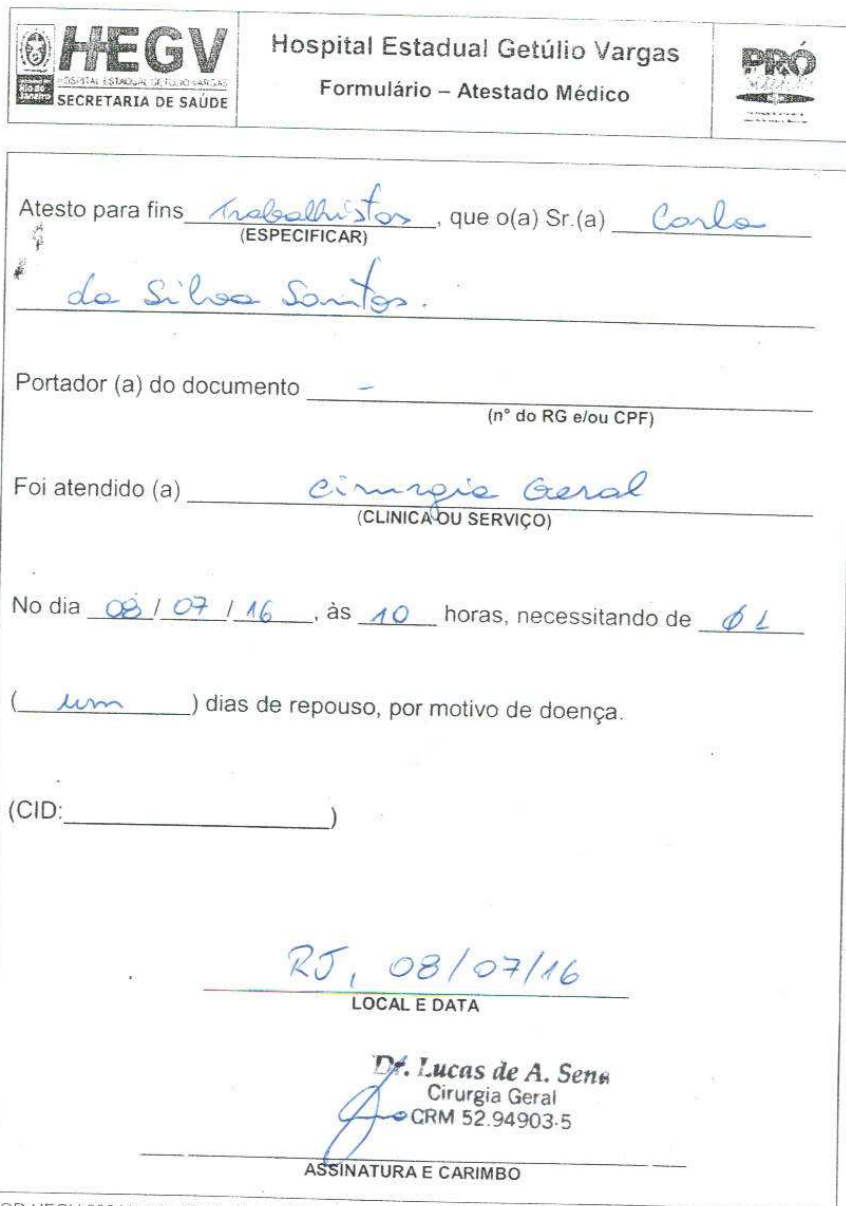 HEGV
HOSPITAL ESTADUAL GETÚLIO VARGAS
SECRETARIA DE SAÚDE
Hospital Estadual Getúlio Vargas
Formulário – Atestado Médico
PRÓ
Atesto para fins Trabalhistas, que o(a) Sr.(a) Carla
(ESPECIFICAR)
da Silva Santos.
Portador (a) do documento -
(nº do RG e/ou CPF)
Foi atendido (a) Cirurgia Geral
(CLINICA OU SERVIÇO)
No dia 08/07/16, às 10 horas, necessitando de 01
(um) dias de repouso, por motivo de doença.
(CID:)
RJ, 08/07/16
LOCAL E DATA
Dr. Lucas de A. Sena
Cirurgia Geral
CRM 52.94903-5
ASSINATURA E CARIMBO